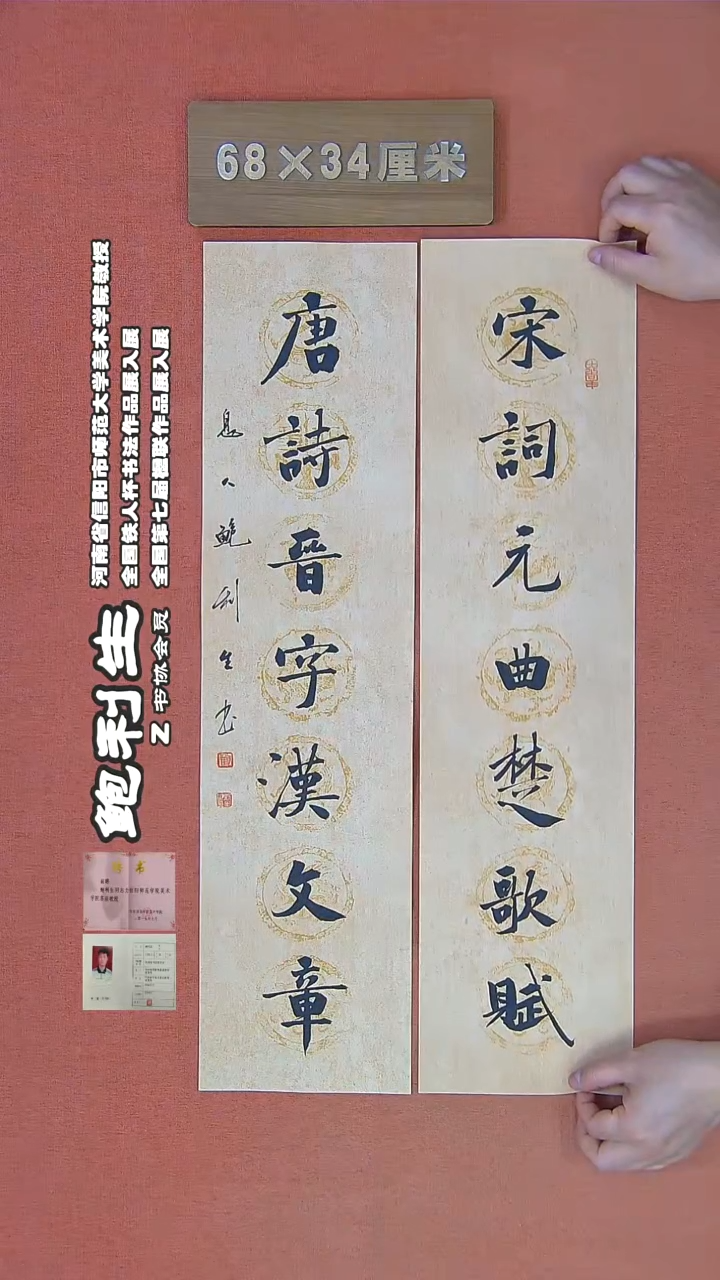 68×34厘米
宋詞元曲楚歌賦
唐詩晉字漢文章
息人鮑利生书
鲍利生
Z 书协会员
河南省信阳市师范大学美术学院教授
全国铁人杯书法作品展入展
全国第七届楹联作品展入展
聘书